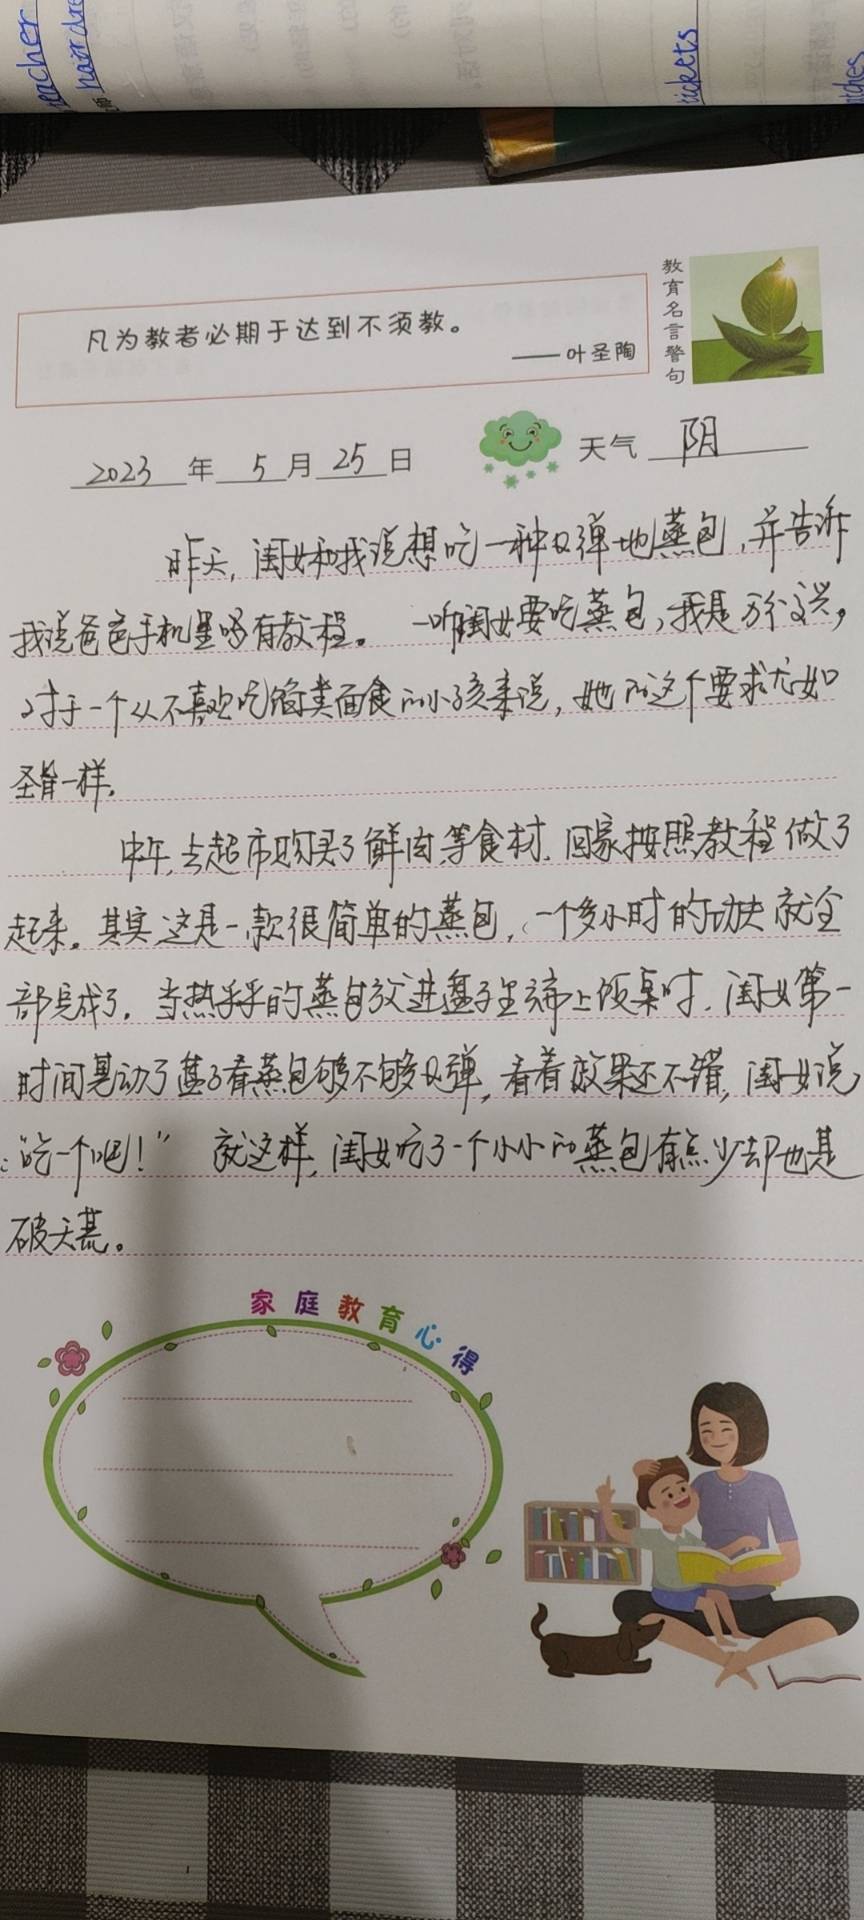 eacher
haird
ickets
tches
教育名言警句
凡为教者必期于达到不须教。
——叶圣陶
2023年5月25日
天气 阴
昨天,闺女和我说想吃一种Q弹地蒸包,并告诉
我说爸爸手机里吗有教程。一听闺女要吃蒸包,我是万分高兴,
对于一个从不喜欢吃馅类面食的小孩来说,她的这个要求尤如
圣旨一样。
中午,去超市购买了鲜肉等食材.回家按照教程做了
起来。其实这是一款很简单的蒸包,一个多小时的功夫就全
部完成了。当热乎乎的蒸包放进盘子里端上饭桌时,闺女第一
时间晃动了盘子看蒸包够不够Q弹,看着效果还不错,闺女说
:“吃一个吧!”就这样,闺女吃了一个小小的蒸包有点少却也是
破天荒。
家庭教育心得